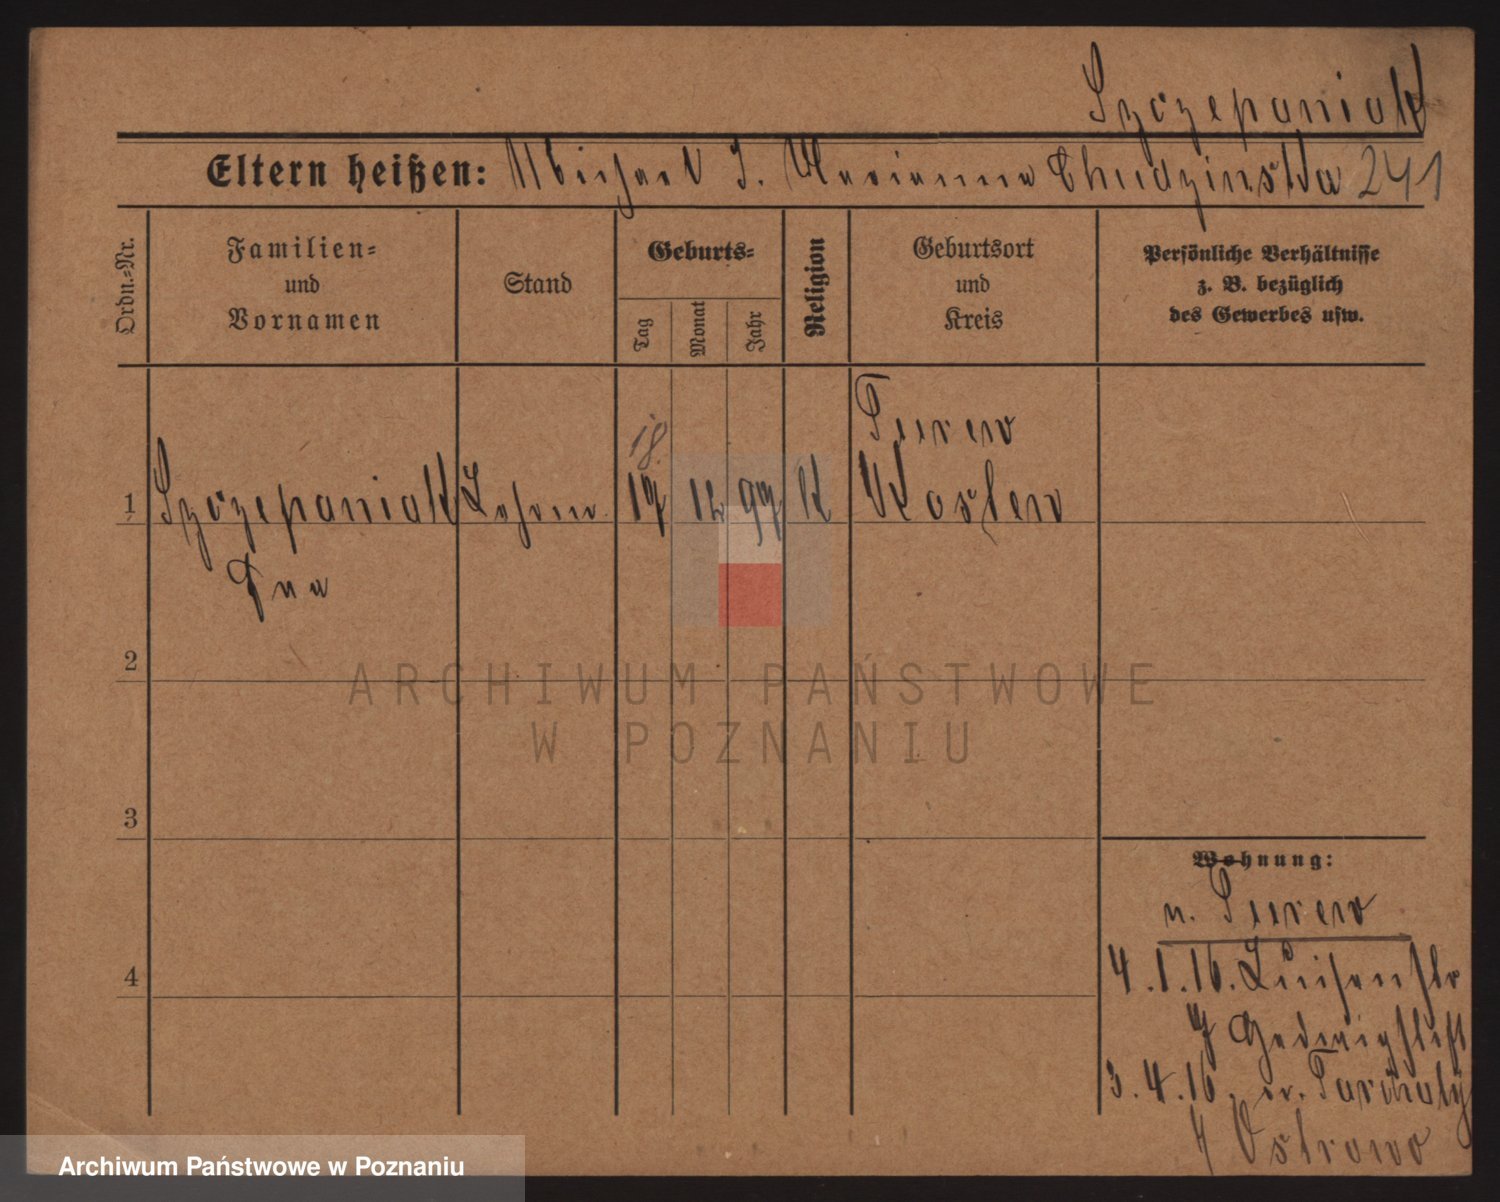 Szczepaniak
Eltern heißen: Michael I. Marianna Chudzinska 241
Ordn.-Nr.
Familien-
und
Vornamen
Stand
Geburts-
Tag
Monat
Jahr
Religion
Geburtsort
und
Kreis
Persönliche Verhältnisse
z. B. bezüglich
des Gewerbes usw.
Turew
18.
1 Szczepaniak 17 12 97 K Kosten
2
3
4
Wohnung:
n. Turew
4.1.16. Luisenstr
7 Hedwigstift
3.4.16.
Ostrowo
ARCHIWUM PAŃSTWOWE
W POZNANIU
Archiwum Państwowe w Poznaniu